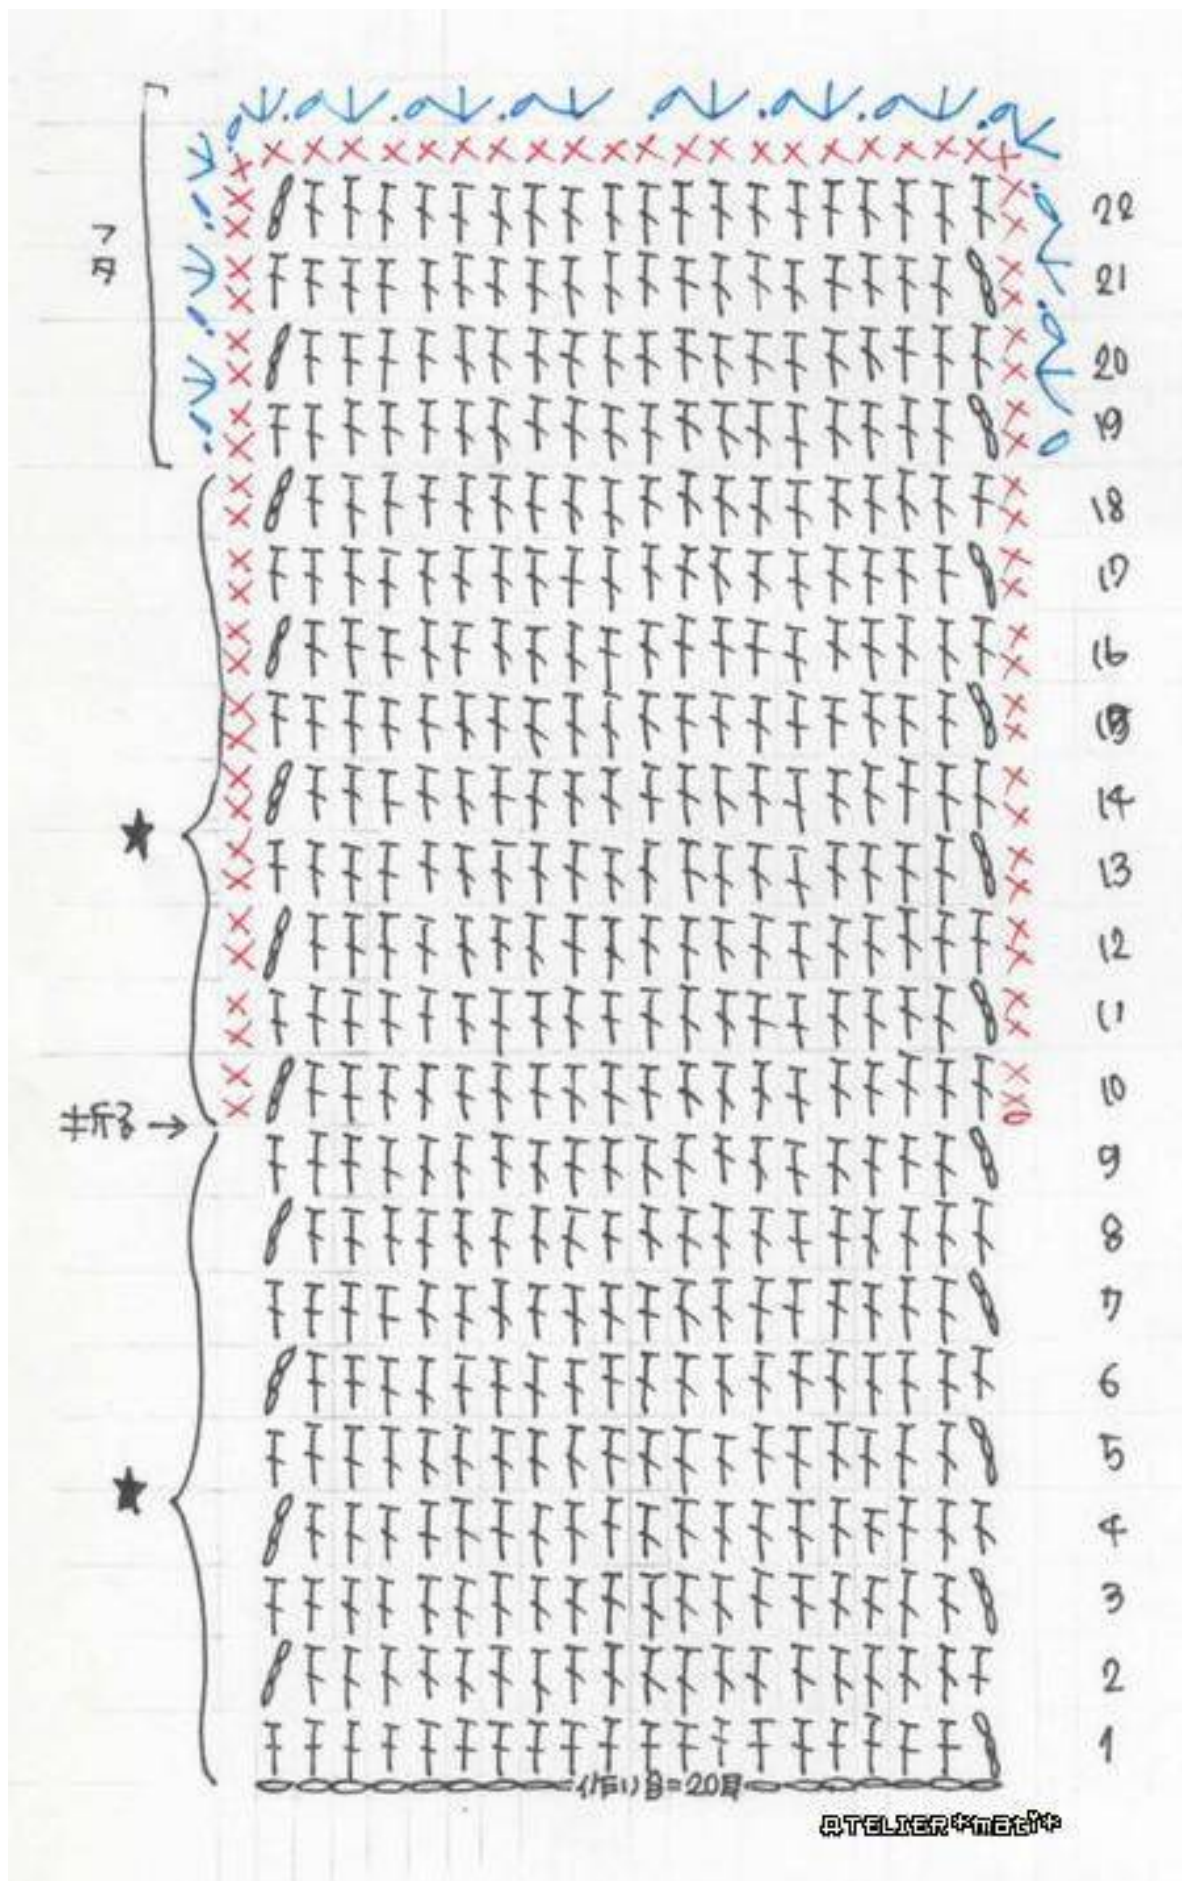 22
フタ
21
20
19
18
17
16
15
14
★
13
12
11
10
折る →
9
8
7
6
5
★
4
3
2
1
作り目=20目
ATELIER*mati*